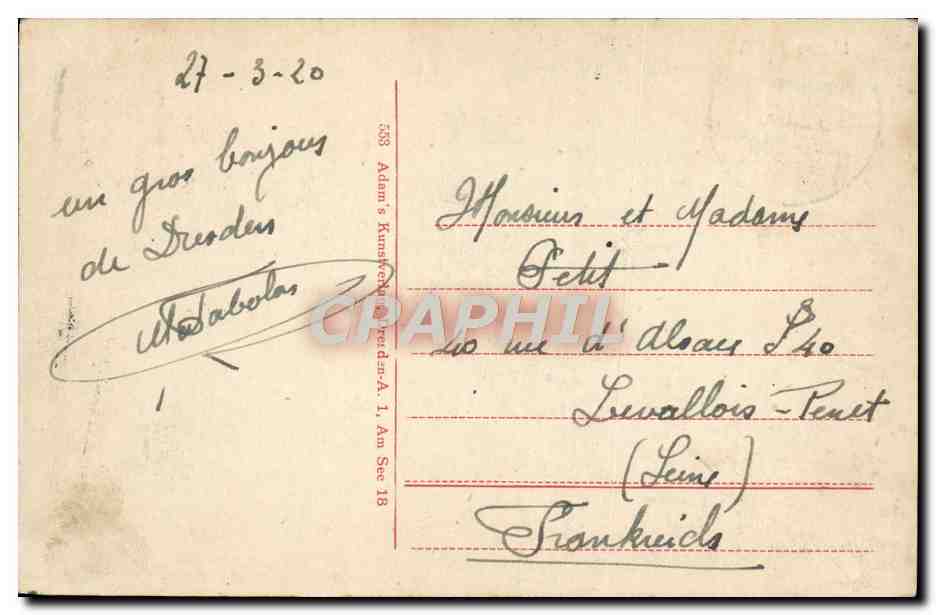 27-3-20
un gros bonjour
de Dresden
553 Adam's Kunstverlag, Dresden-A. 1, Am See 18
CPAPHIL
Monsieur et Madame
Petit
40 rue d'Alsace 40
Levallois-Perret
(Seine)
Frankreich